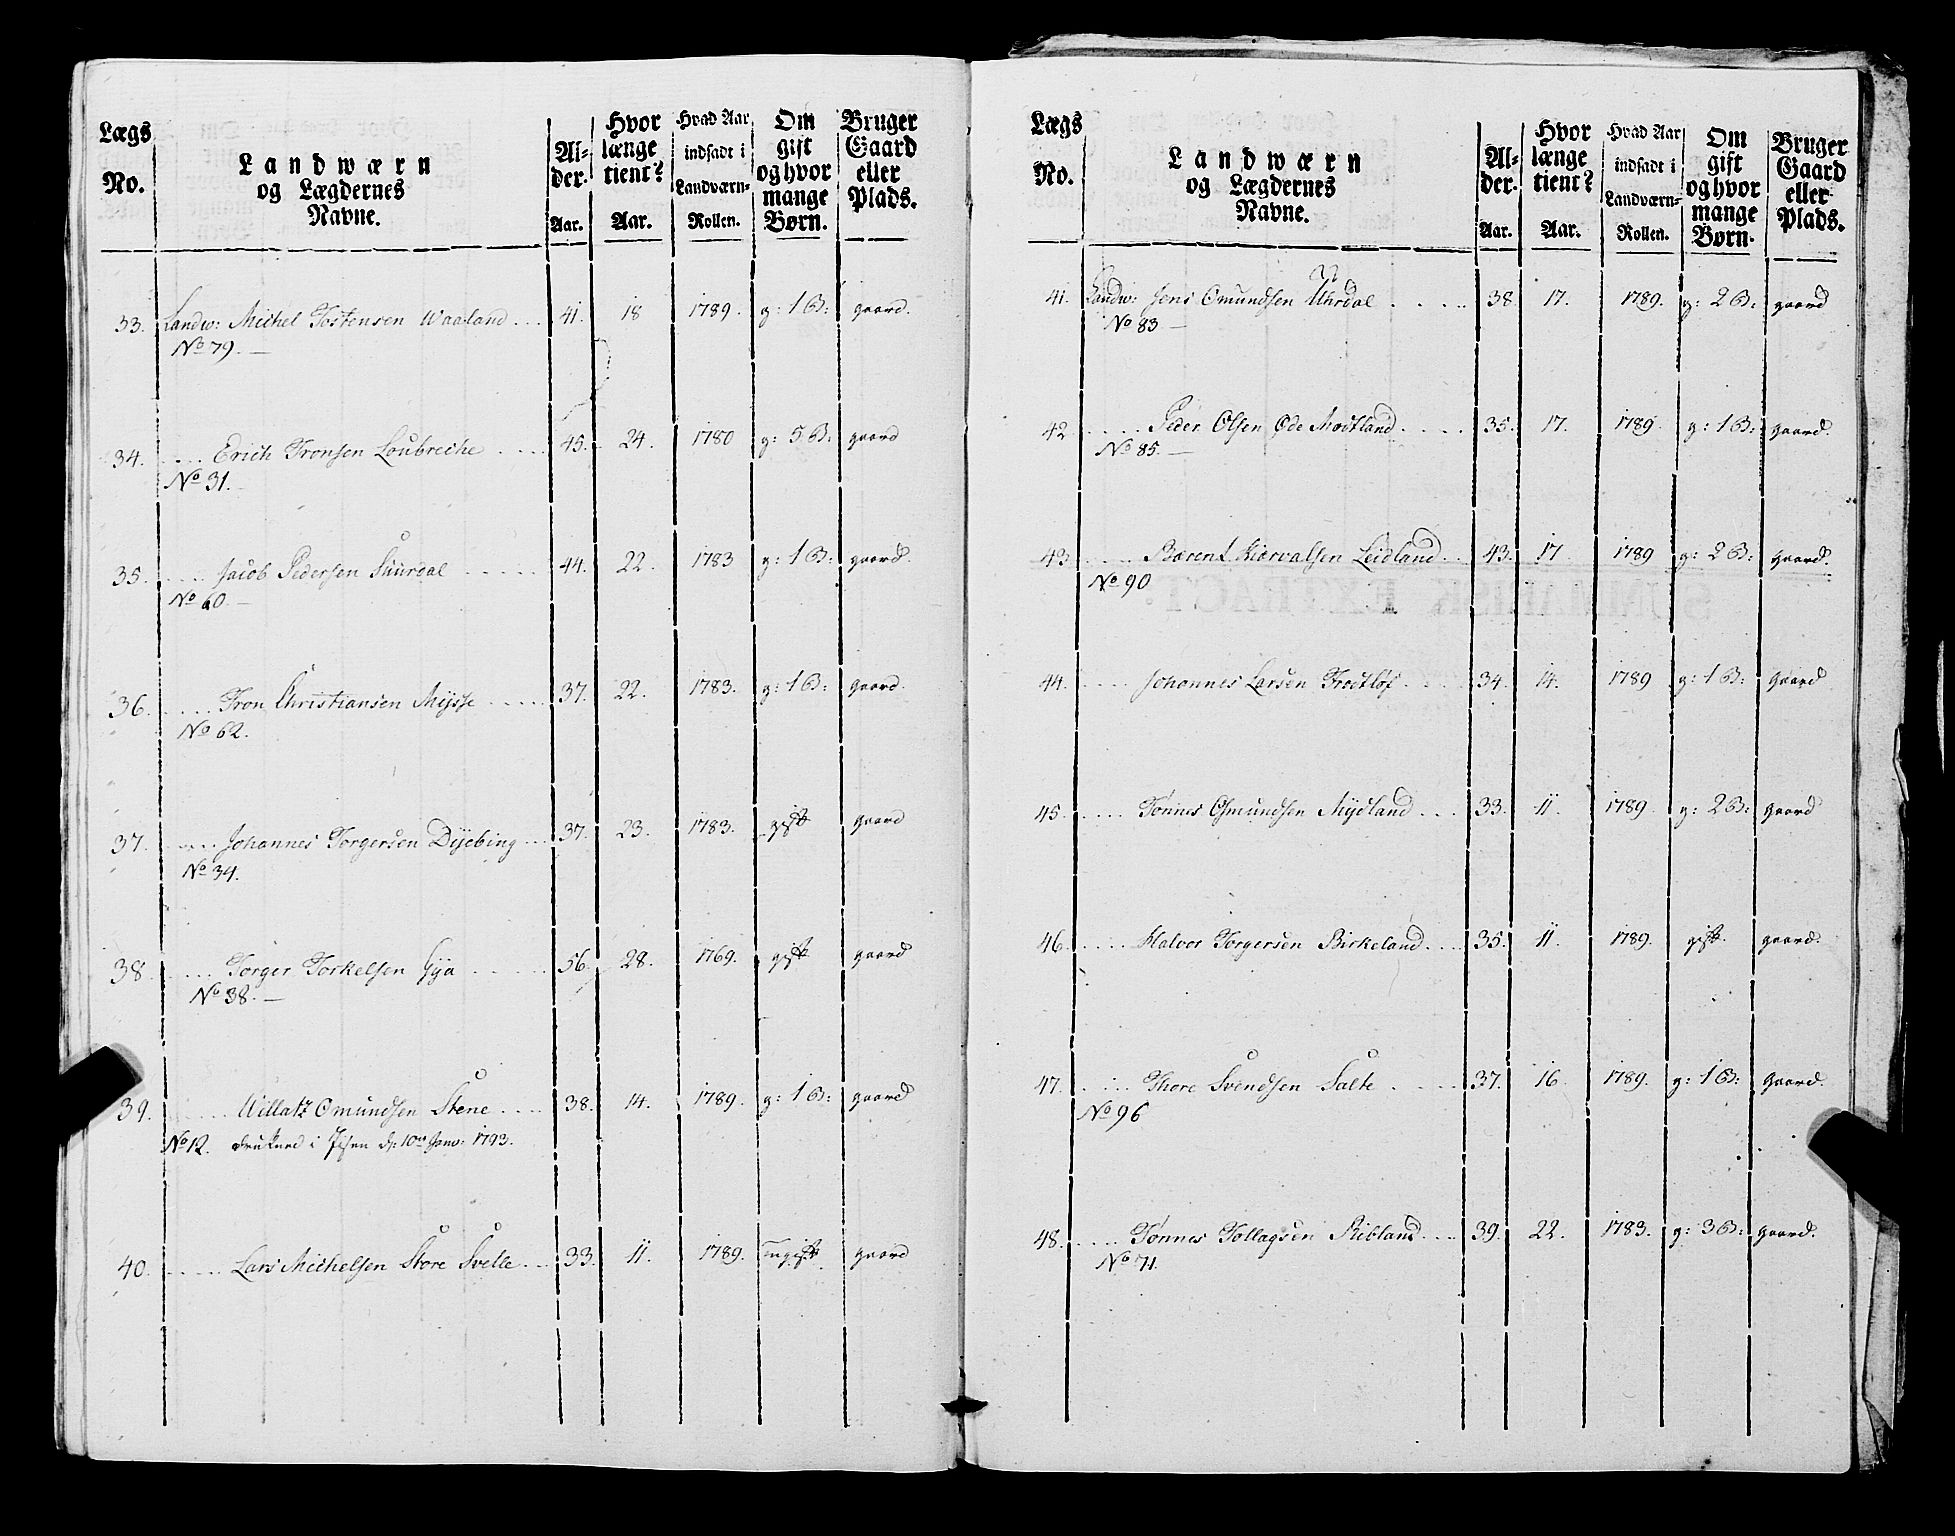 Lægs No. Landwærn og Lægdernes Navne. Alder. Aar. Hvor længe tient? Aar. Hvad Aar indsadt i Landværn-Rollen. Om gift og hvor mange Børn. Bruger Gaard eller Plads.
33. Landw: Michel Tostensen Waaland 41. 18 1789. g: 1 B: gaard.
No 79.
34. Erich Tronsen Loubreche 45. 24. 1780 g: 5 B: gaard
No 31.
35. Jacob Pedersen Suurdal 44. 22. 1783 g: 1 B: gaard.
No 60.
36. Tron Christiansen Mysse 37. 22. 1783. g: 1 B: gaard.
No 62.
37. Johannes Torgersen Dyebing 37. 23. 1783. gift gaard
No 34.
38. Torger Torkelsen Gya 56. 28. 1769. gift gaard
No 38.
39. Willatz Omundsen Stene 38. 14. 1789. g: 1 B: gaard
No 12. drukned i Isen d: 10de Janv: 1793.
40. Lars Michelsen Store Svelle 33. 11. 1789. ugift gaard
Lægs No. Landwærn og Lægdernes Navne. Alder. Aar. Hvor længe tient? Aar. Hvad Aar indsadt i Landværn-Rollen. Om gift og hvor mange Børn. Bruger Gaard eller Plads.
41. Landw: Jens Omundsen Uhrdal 38 17. 1789. g: 2 B: gaard
No 83
42. Peder Olsen Øde Modtland 35. 17. 1789. g: 1 B: gaard.
No 85.
43. Bærent Kiervalsen Leidland 43. 17 1789 g: 2 B: gaard.
No 90
44. Johannes Larsen Frøitløf 34. 14. 1789 g: 1 B: gaard
45. Tønnes Osmundsen Mydland 33. 11. 1789. g: 2 B: gaard
46. Halvor Torgersen Birkeland 35. 11. 1789. gift. gaard.
47. Thore Svendsen Salte 37. 16 1789. g: 1 B: gaard.
No 96
48. Tønnes Tollagsen Ribland 39. 22. 1783. g: 3 B: gaard.
No 71.